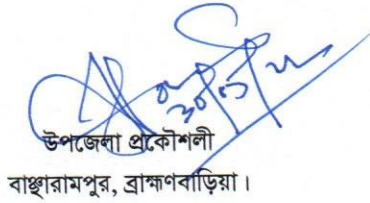 উপজেলা প্রকৌশলী
বাঞ্ছারামপুর, ব্রাহ্মণবাড়িয়া।